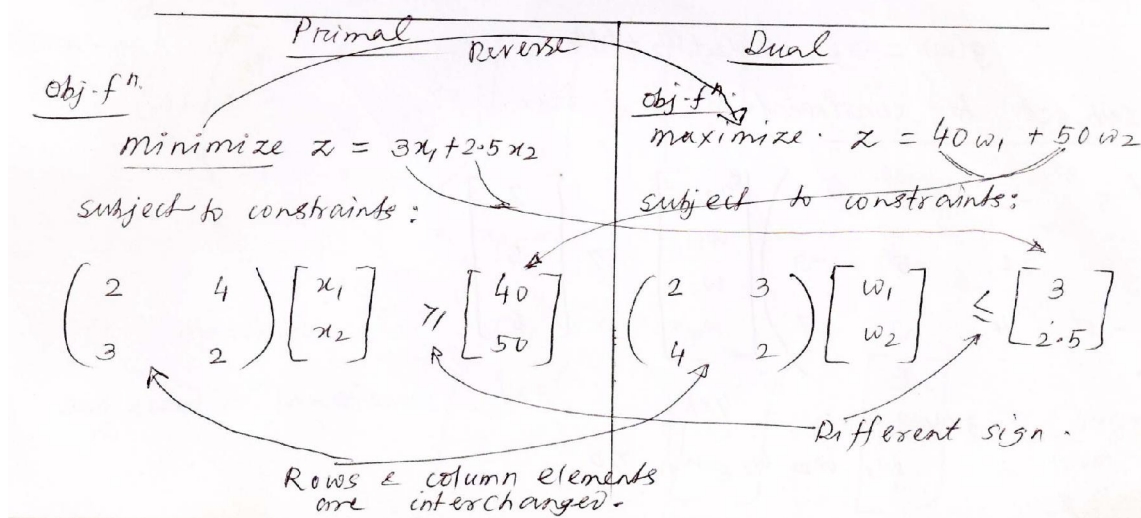 Primal
Reverse
Obj. fⁿ.
Minimize z = 3x₁ + 2.5x₂
subject to constraints:
( 2 4 ) [ x₁ ] ≥ [ 40 ]
( 3 2 ) [ x₂ ] [ 50 ]
Dual
Obj. fⁿ.
maximize. z = 40w₁ + 50w₂
subject to constraints:
( 2 3 ) [ w₁ ] ≤ [ 3 ]
( 4 2 ) [ w₂ ] [ 2.5 ]
Different sign.
Rows & column elements
are interchanged.